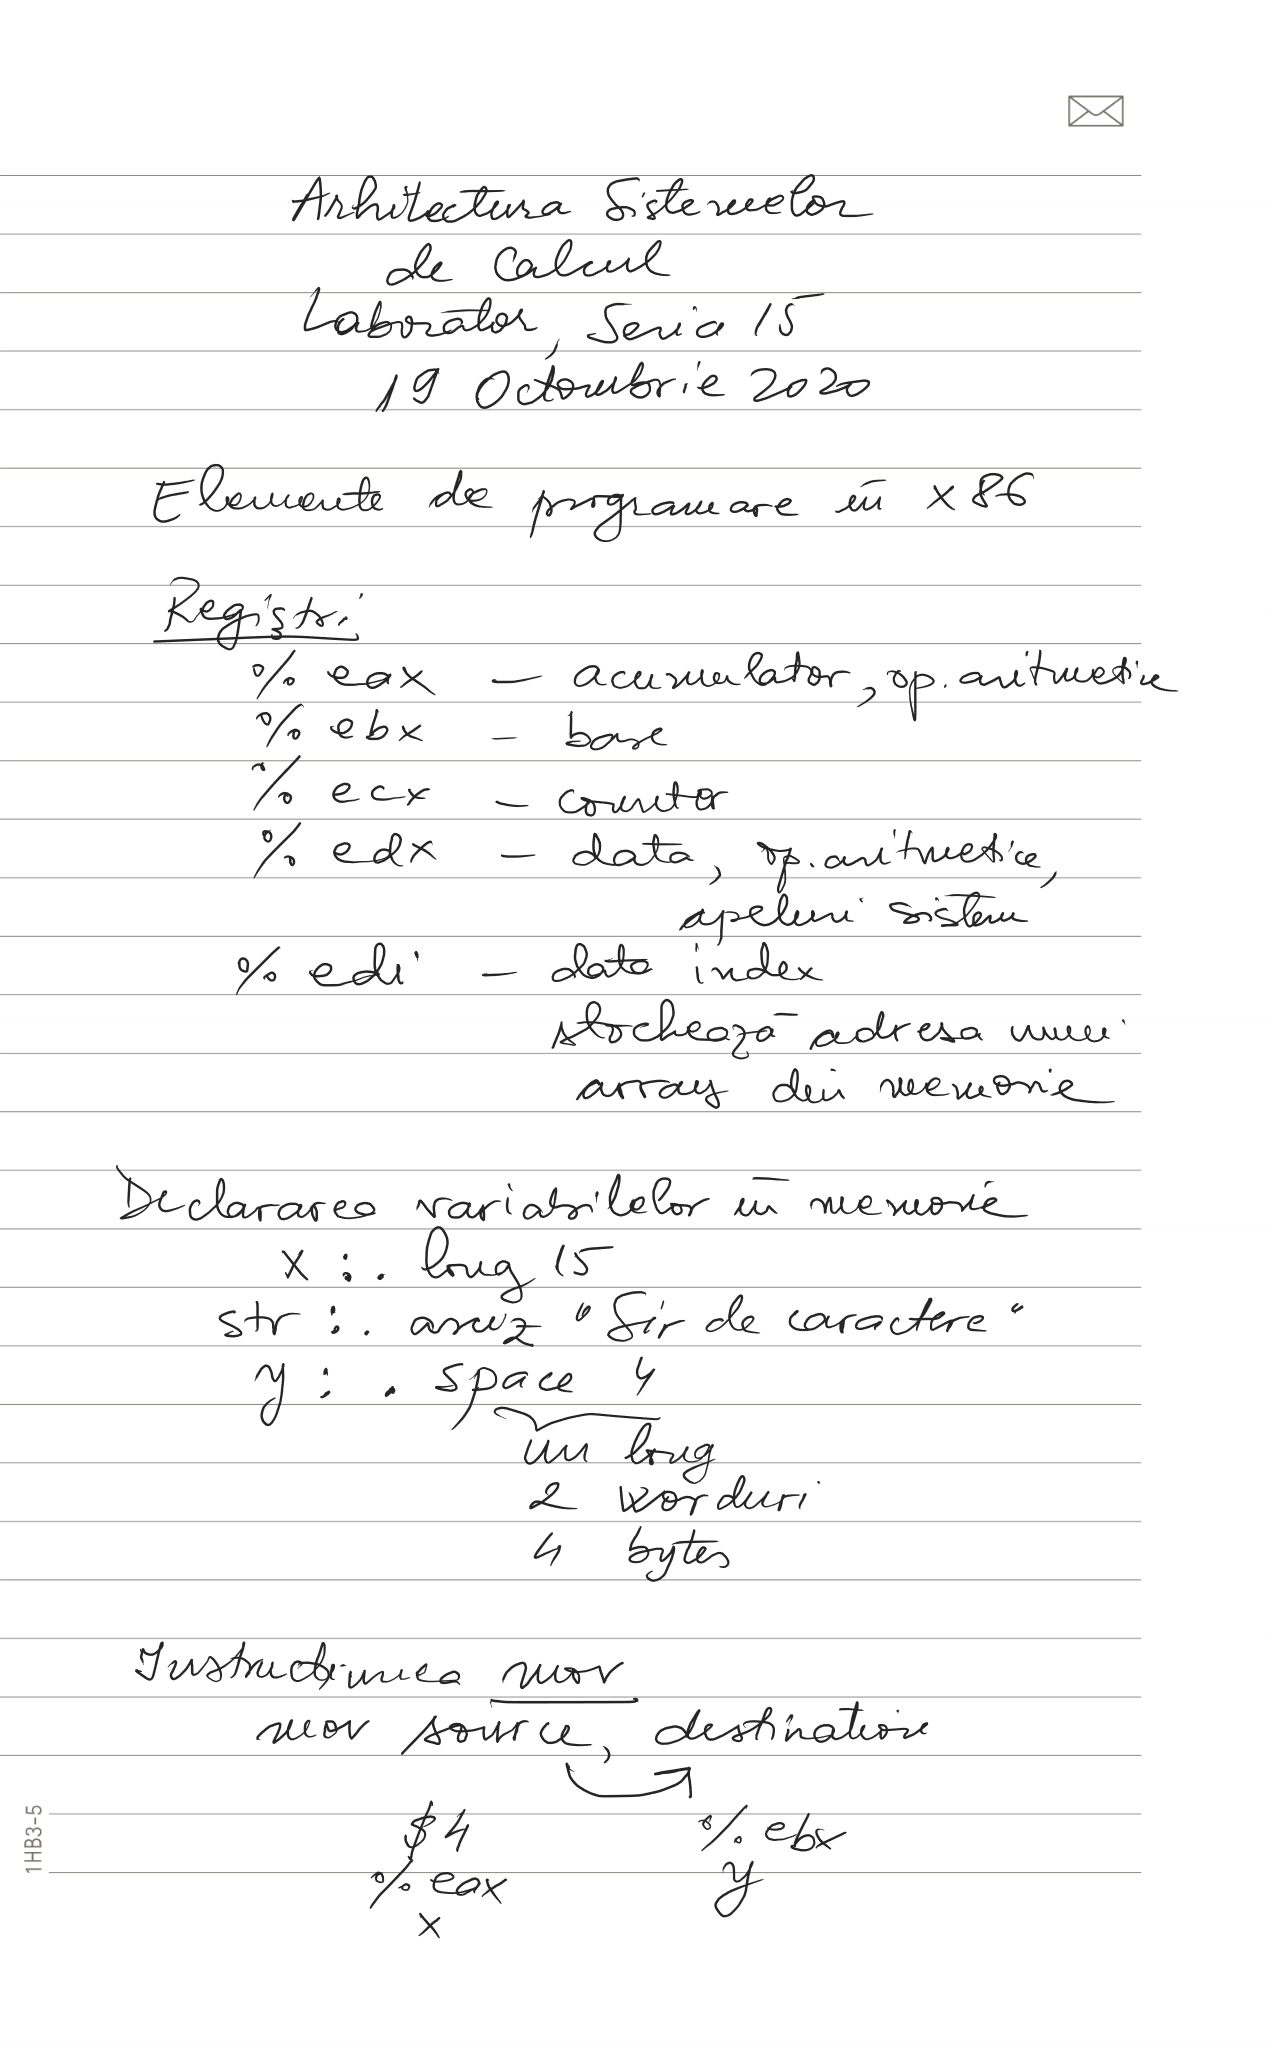 Arhitectura Sistemelor
de Calcul
Laborator, Seria 15
19 Octombrie 2020
Elemente de programare în x86
Regiștri
% eax — acumulator, op. aritmetice
% ebx — base
% ecx — counter
% edx — data, op. aritmetice,
apeluri sistem
% edi — data index
stochează adresa unui
array din memorie
Declararea variabilelor în memorie
x : . long 15
str : . asciz "Sir de caractere"
y : . space 4
un long
2 worduri
4 bytes
Instrucțiunea mov
mov source, destination
$4 % ebx
% eax y
x
1HB3-5